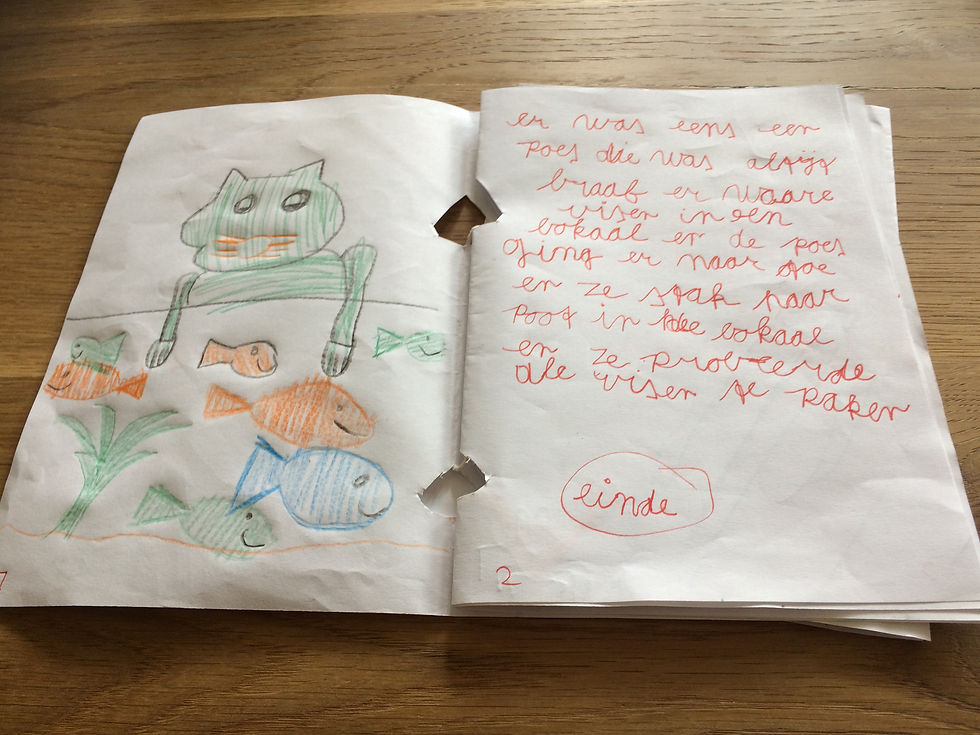 er was eens een
poes die was altijt
braaf er waare
visen in een
bokaal en de poes
ging er naar toe
en ze stak haar
poot in de bokaal
en ze probeerde
de visen te paken
einde
2